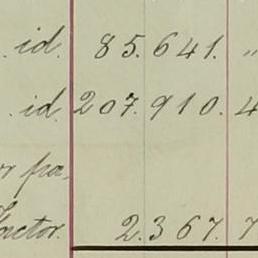 id. 85.641. "
id 207.910. 4
or pa-
factor. 2.367. 7